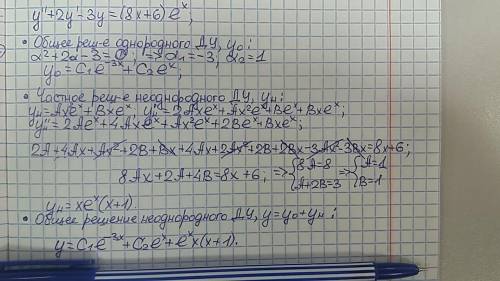 y''+2y'-3y=(8x+6)eˣ;
• Общее реш-е однородного ДУ, y₀:
α²+2α-3=0; => α₁=-3, α₂=1
y₀=C₁e⁻³ˣ+C₂eˣ;
• Частное реш-е неоднородного ДУ, yн:
yн=Ax²eˣ+Bxeˣ; y'н=2Axeˣ+Ax²eˣ+Beˣ+Bxeˣ;
y''н=2Aeˣ+4Axeˣ+Ax²eˣ+2Beˣ+Bxeˣ;
2A+4Ax+Ax²+2B+Bx+4Ax+2Ax²+2B+2Bx-3Ax²-3Bx=8x+6;
8Ax+2A+4B=8x+6; => {8A=8 => {A=1
A+2B=3 B=1
yн=xeˣ(x+1).
• Общее решение неоднородного ДУ, y=y₀+yн:
y=C₁e⁻³ˣ+C₂eˣ+eˣx(x+1).